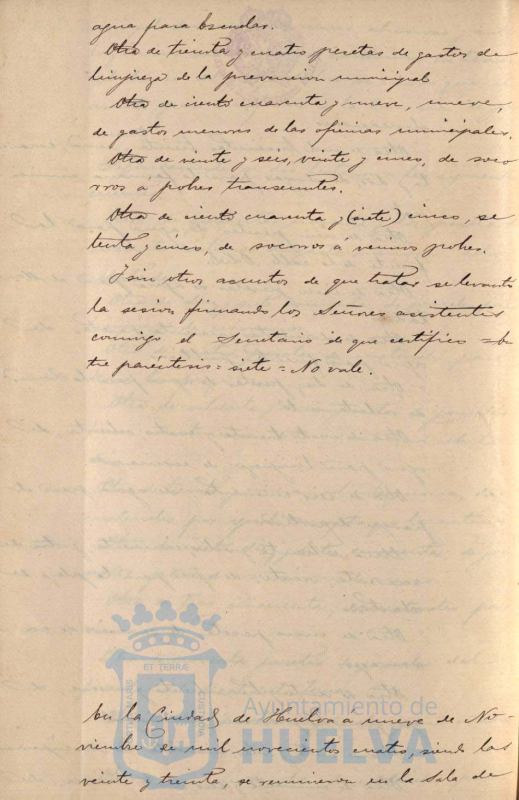 agua para Escuelas.
Otra de treinta y cuatro pesetas de gastos de
limpieza de la prevencion municipal
Otra de ciento cuarenta y nueve, nueve,
de gastos menores de las oficinas municipales.
Otra de veinte y seis, veinte y cinco, de soco-
rros á pobres transeuntes.
Otra de ciento cuarenta y (siete) cinco, se
tenta y cinco, de socorros á vecinos pobres.
Y sin otros asuntos de que tratar se levantó
la sesion firmando los Señores asistentes
conmigo el Secretario de que certifico =
tre paréntesis = siete = No vale.
ET TERRÆ
Ayuntamiento de
HUELVA
En la Ciudad de Huelva a nueve de No-
viembre de mil novecientos cuatro, siendo las
veinte y treinta, se reunieron en la Sala de